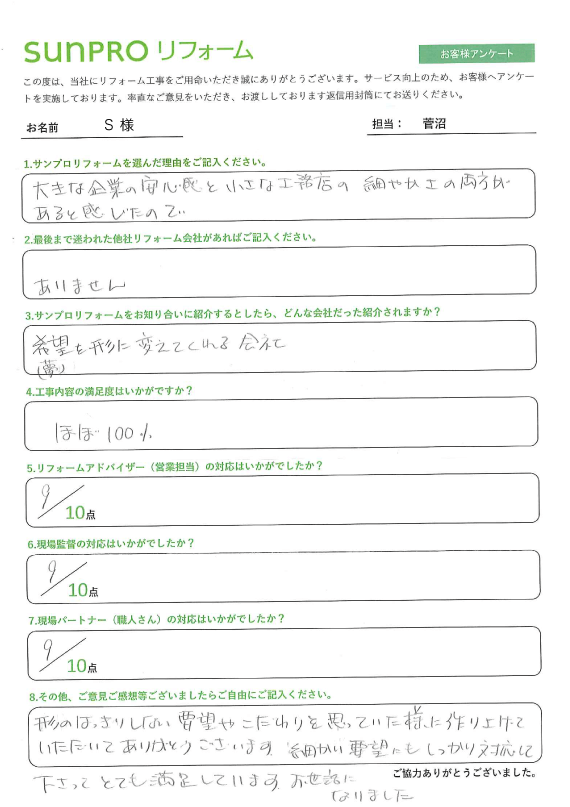 SUNPRO リフォーム
お客様アンケート
この度は、当社にリフォーム工事をご用命いただき誠にありがとうございます。サービス向上のため、お客様へアンケー
トを実施しております。率直なご意見をいただき、お渡ししております返信用封筒にてお送りください。
お名前 S 様 担当： 菅沼
1.サンプロリフォームを選んだ理由をご記入ください。
大きな企業の安心感と小さな工務店の 細やかさの両方が
あると感じたので
2.最後まで迷われた他社リフォーム会社があればご記入ください。
ありません
3.サンプロリフォームをお知り合いに紹介するとしたら、どんな会社だった紹介されますか？
希望を形に変えてくれる会社
(夢)
4.工事内容の満足度はいかがですか？
ほぼ100%
5.リフォームアドバイザー（営業担当）の対応はいかがでしたか？
9/10点
6.現場監督の対応はいかがでしたか？
9/10点
7.現場パートナー（職人さん）の対応はいかがでしたか？
9/10点
8.その他、ご意見ご感想等ございましたらご自由にご記入ください。
形のはっきりしない要望やこだわりを思っていた様に作り上げて
いただいてありがとうございます 細かい要望にもしっかり対応して
ご協力ありがとうございました。
下さってとても満足しています お世話に
なりました